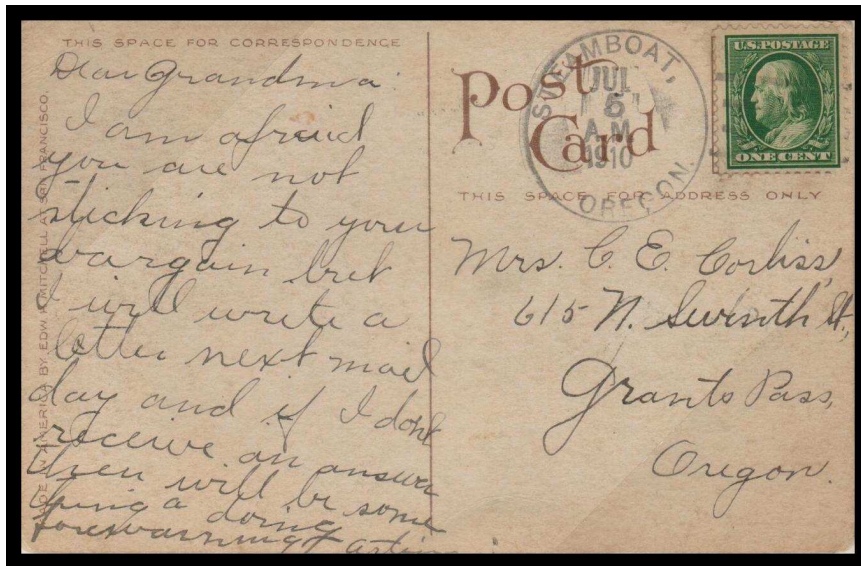 THIS SPACE FOR CORRESPONDENCE
Dear Grandma:
I am afraid
you are not
sticking to your
bargain but
I will write a
letter next mail
day and if I dont
receive an answer
there will be some
thing a doing
forewarning
MADE IN AMERICA BY EDW. H. MITCHELL AT SAN FRANCISCO.
Post
Card
STEAMBOAT,
JUL
5
A.M.
1910
OREGON.
U.S. POSTAGE
ONE CENT
THIS SPACE FOR ADDRESS ONLY
Mrs. C. E. Corliss,
615 N. Seventh St.,
Grants Pass,
Oregon.